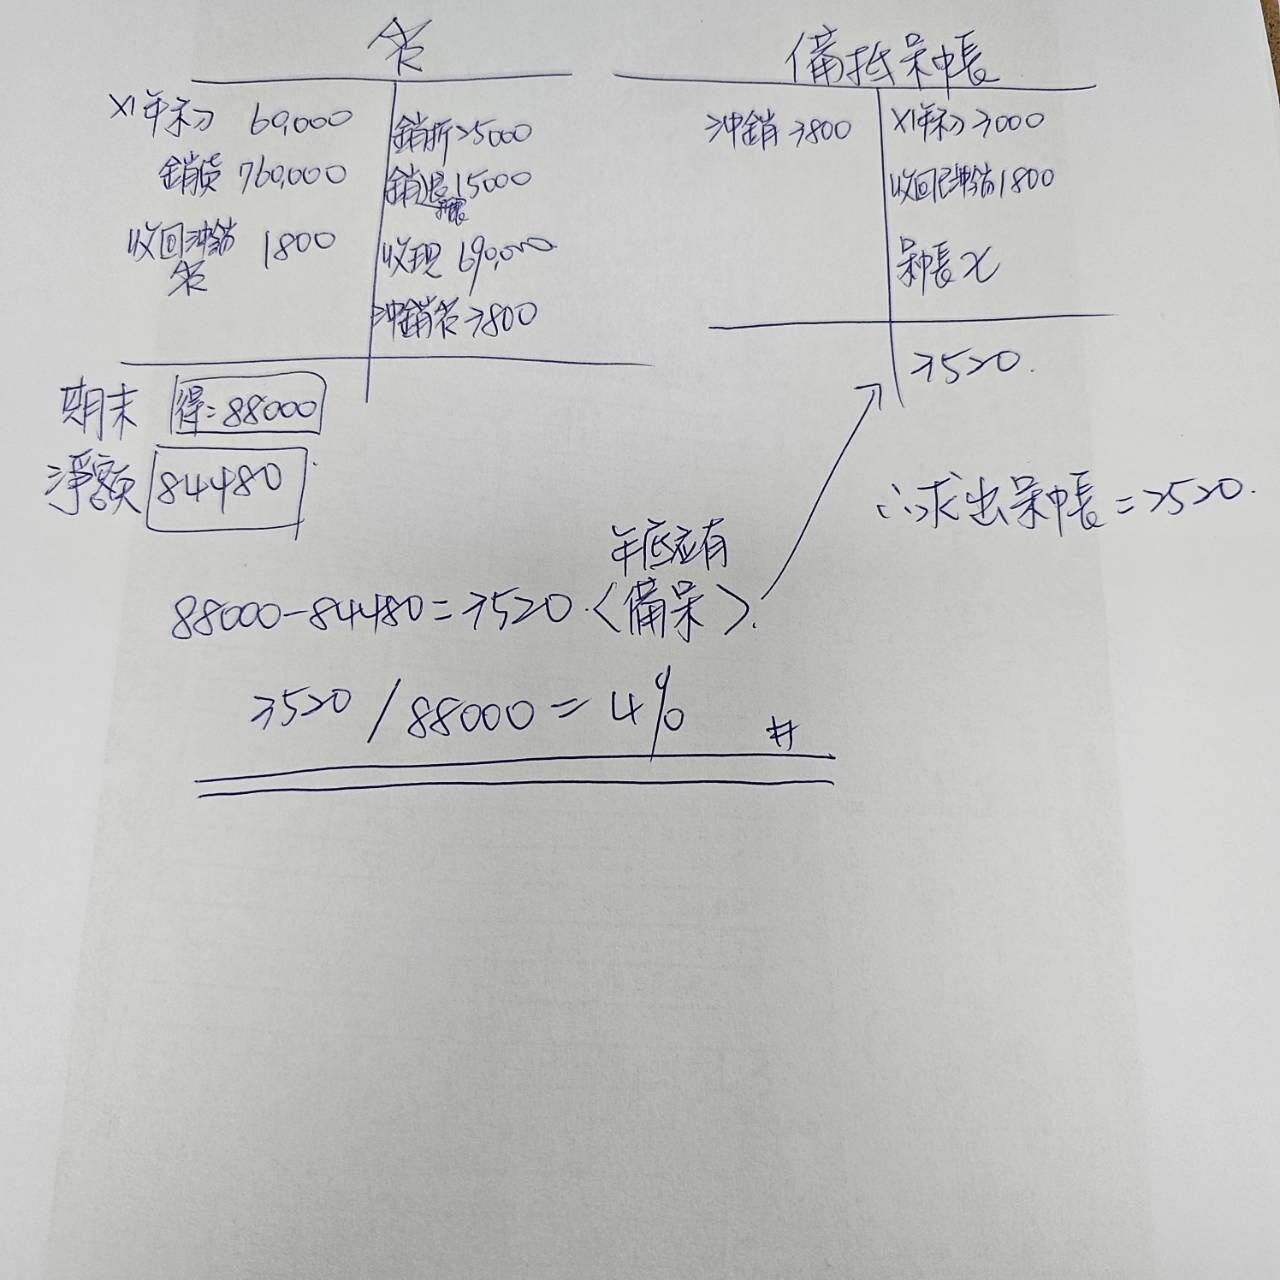 AR
備抵呆帳
X1年初 60,000
銷貨 760,000
收回沖銷 1800
AR
銷折 25000
銷退 15000
收現 690,000
沖銷AR 3800
沖銷 3800
X1年初 3000
收回已沖銷 1800
呆帳 x
3520.
期末 得=88000
淨額 84480
∴求出呆帳=2520.
年底应有
88000-84480=3520.〈備呆〉.
3520 / 88000 = 4% #